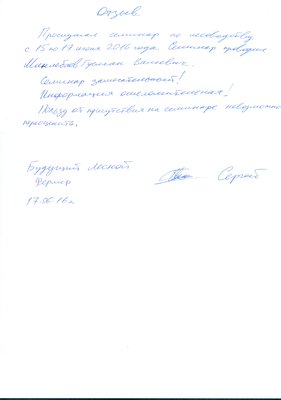 Отзыв
Проходил семинар по лесоводству
с 15 по 17 июня 2016 года. Семинар проводил
Семинар замечательный!
Информация ошеломительная!
Пользу от присутствия на семинаре невозможно
переоценить.
Будущий Лесной
Фермер
Сергей
17.06.16г.